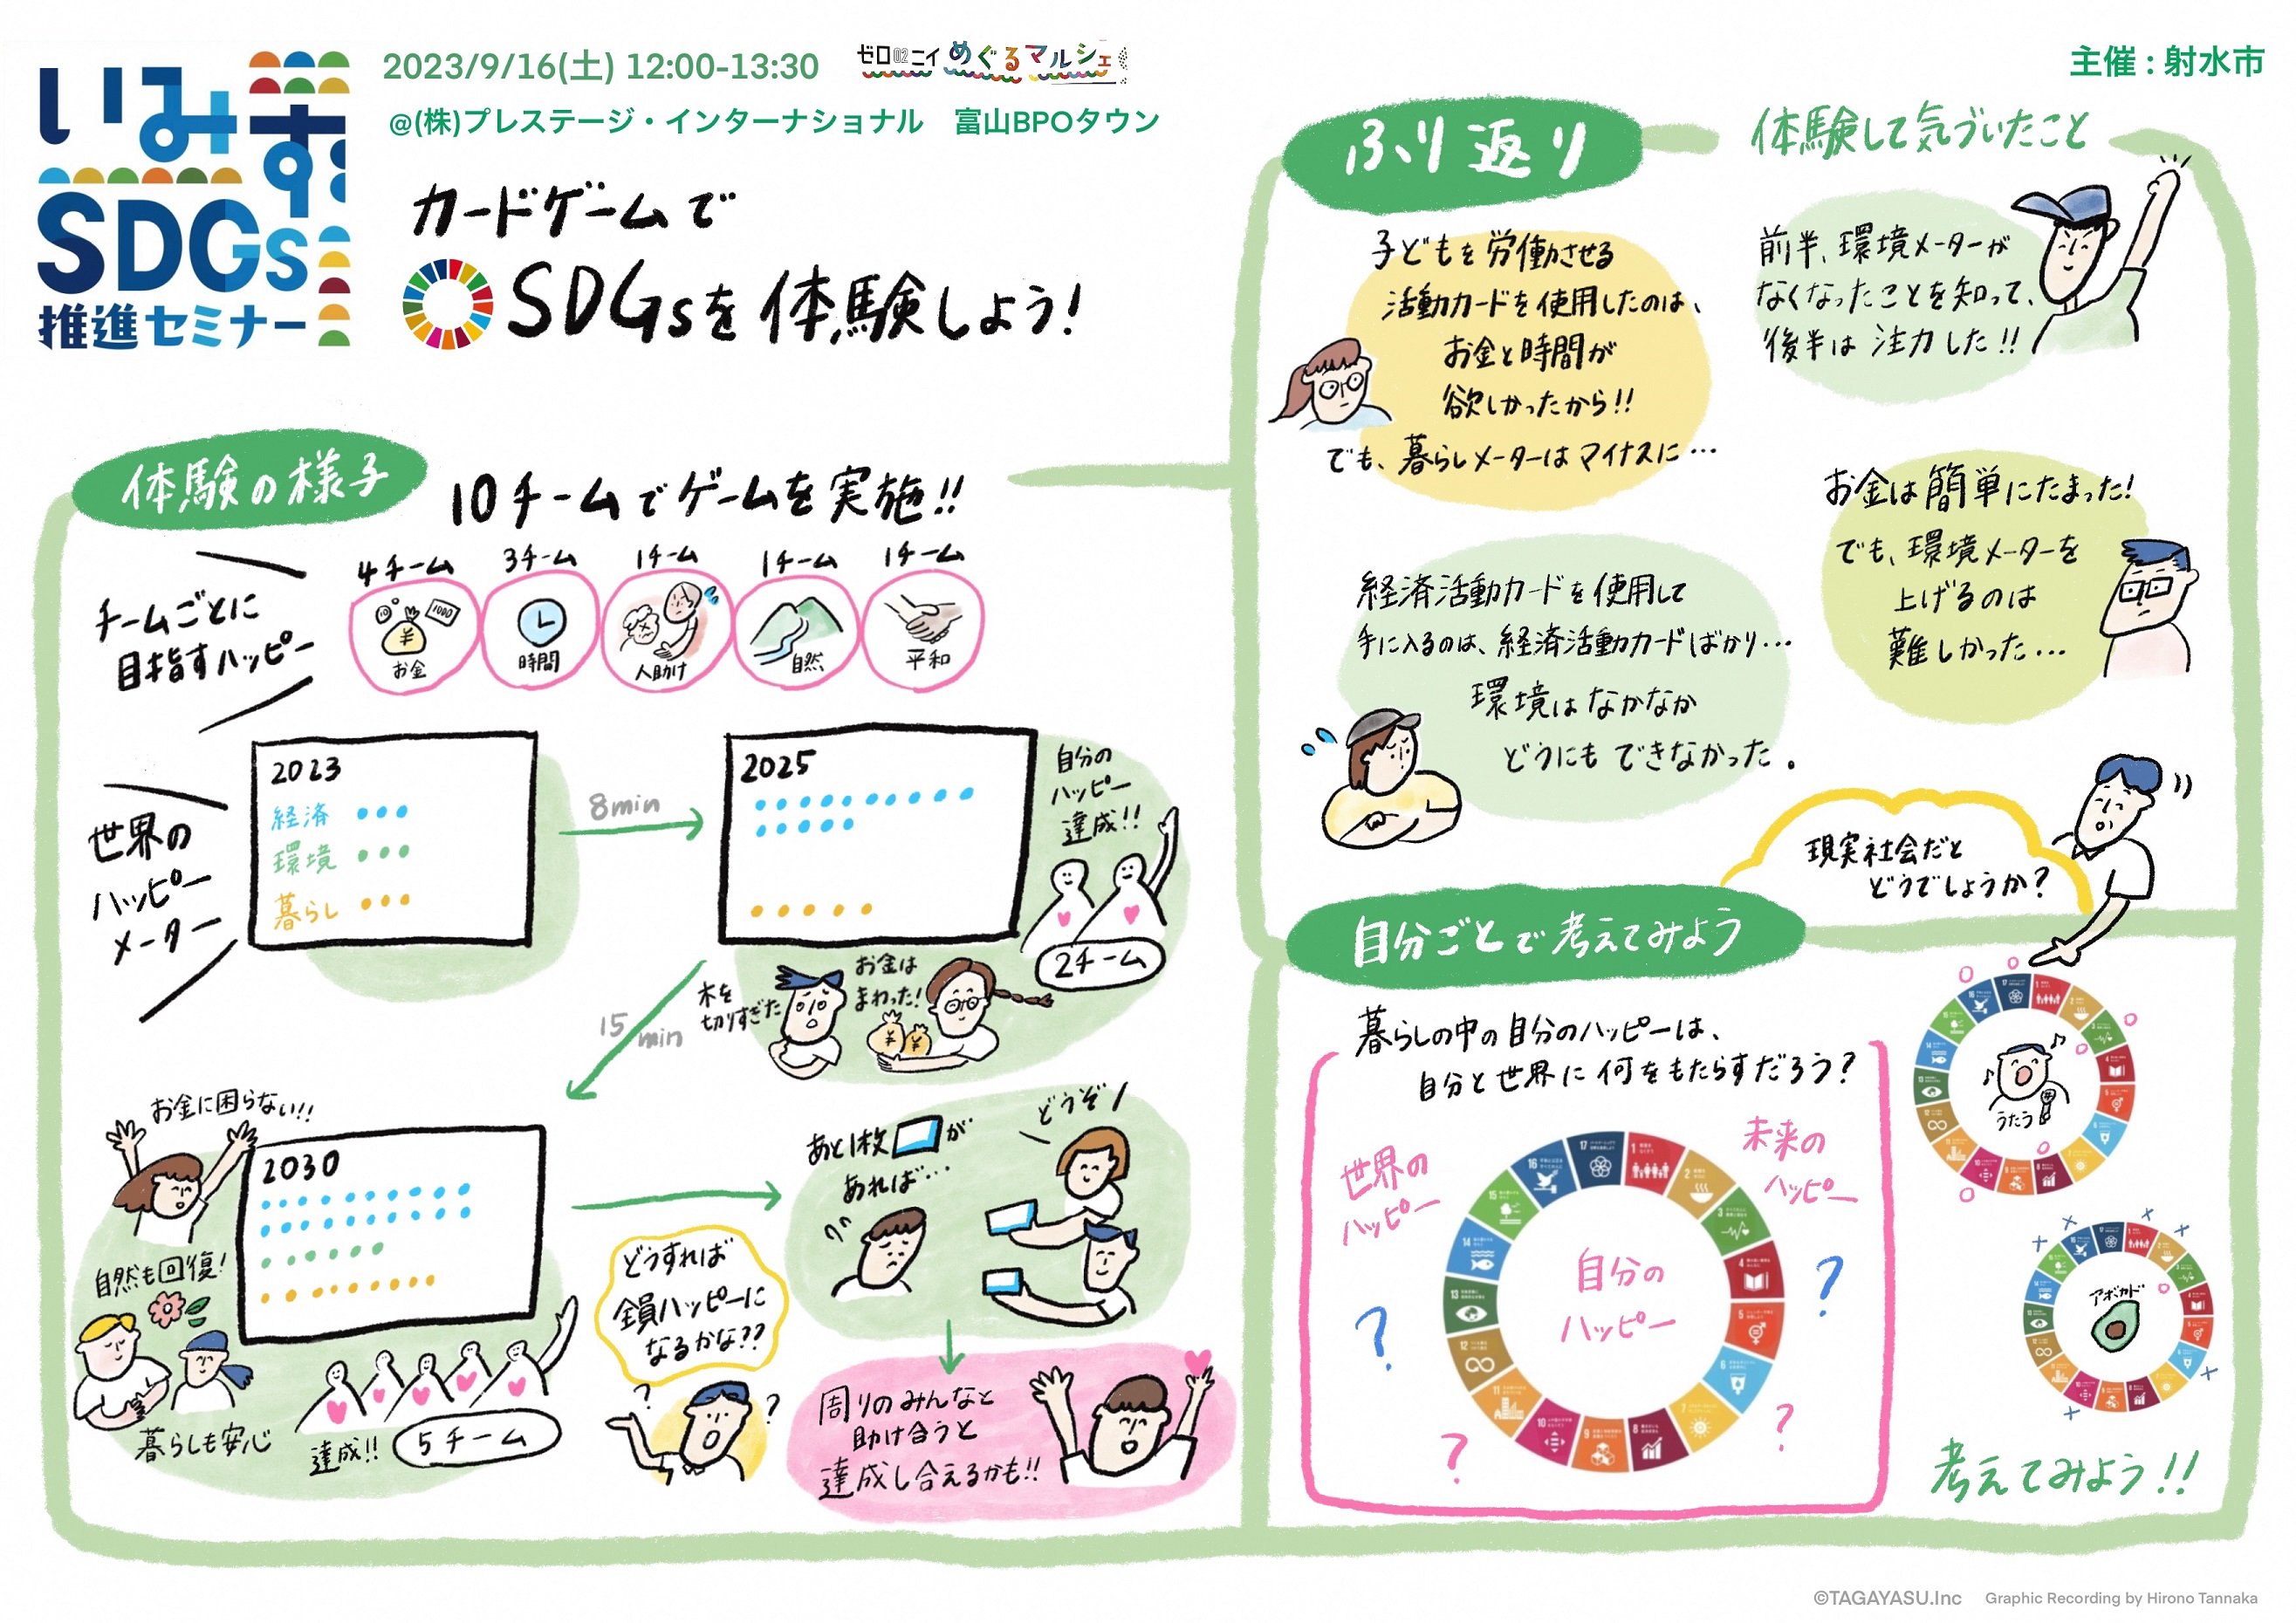 いみず
SDGs
推進セミナー
2023/9/16(土) 12:00-13:30
ゼロニイ めぐるマルシェ
@(株)プレステージ・インターナショナル　富山BPOタウン
主催：射水市
カードゲームで
SDGsを体験しよう！
体験の様子
10チームでゲームを実施!!
チームごとに
目指すハッピー
4チーム
お金
3チーム
時間
1チーム
人助け
1チーム
自然
1チーム
平和
世界の
ハッピー
メーター
2023
経済
環境
暮らし
8min
2025
自分の
ハッピー
達成!!
2チーム
木を
切りすぎた
お金は
まわった!
15
min
お金に困らない!!
2030
自然も回復!
暮らしも安心
達成!!
5チーム
どうすれば
全員ハッピーに
なるかな??
あと1枚 が
あれば…
どうぞ!
周りのみんなと
助け合うと
達成し合えるかも!!
ふり返り
体験して気づいたこと
子どもを労働させる
活動カードを使用したのは、
お金と時間が
欲しかったから!!
でも、暮らしメーターはマイナスに…
前半、環境メーターが
なくなったことを知って、
後半は注力した!!
お金は簡単にたまった!
でも、環境メーターを
上げるのは
難しかった…
経済活動カードを使用して
手に入るのは、経済活動カードばかり…
環境はなかなか
どうにもできなかった。
現実社会だと
どうでしょうか?
自分ごとで考えてみよう
暮らしの中の自分のハッピーは、
自分と世界に何をもたらすだろう?
世界の
ハッピー
未来の
ハッピー
自分の
ハッピー
1
2
3
4
5
6
7
8
9
10
11
12
13
14
15
16
17
うたう
アボカド
考えてみよう!!
©TAGAYASU.Inc
Graphic Recording by Hirono Tannaka